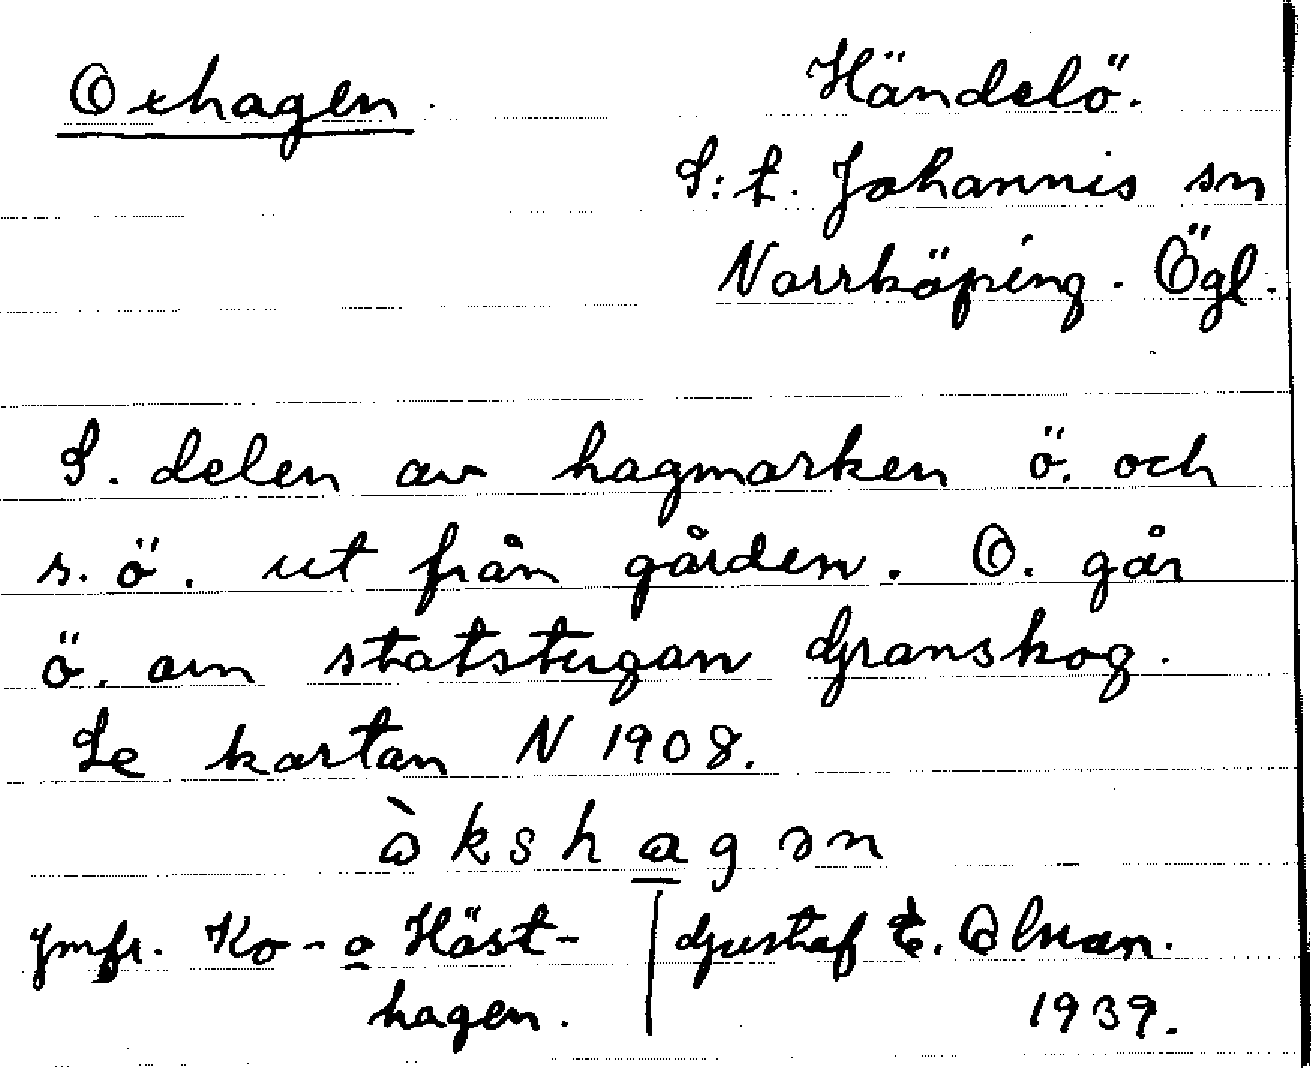 Oxhagen.
Händelö.
S:t. Johannis sn
Norrköping. Ögl.
S. delen av hagmarken ö. och
s. ö. ut från gården. O. går
ö. om statstugan Granskog.
Se kartan N 1908.
ὼkshagən
Jmfr. Ko- o Häst-
hagen.
Gustaf E. Olsson.
1939.